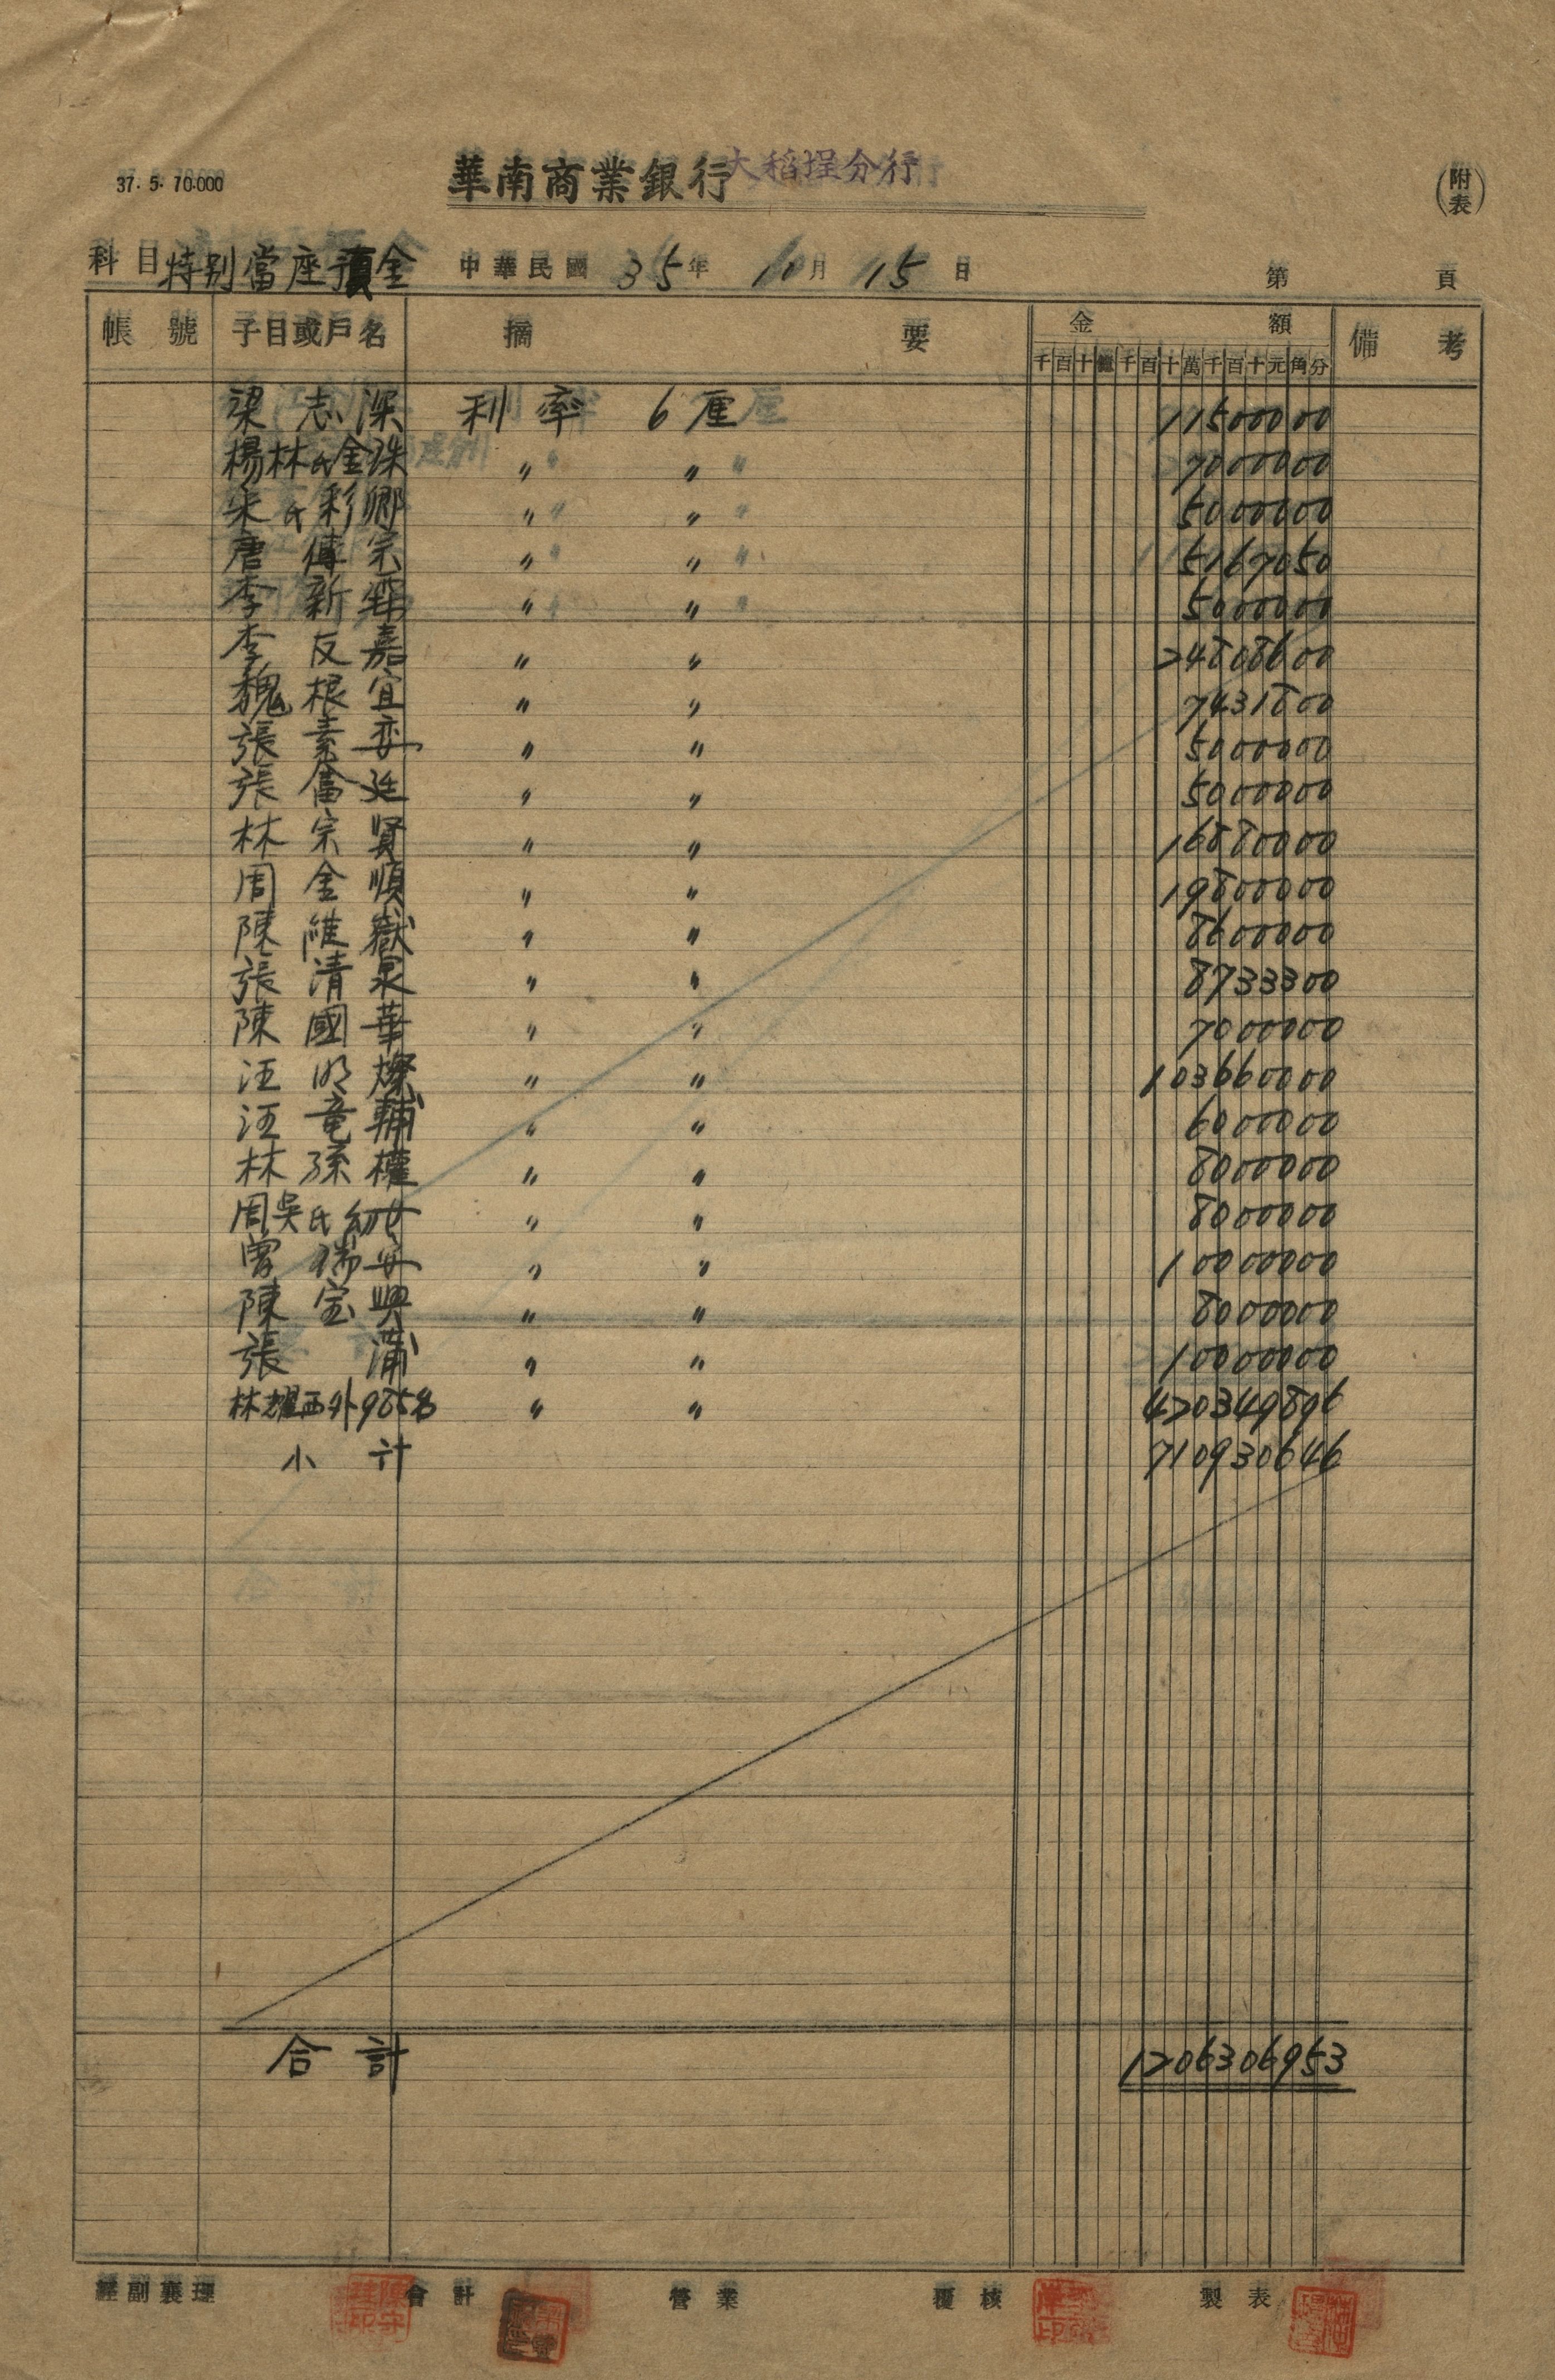 37. 5. 70.000
華南商業銀行大稻埕分行
(附表)
科目 特別當座預金 中華民國 35年 11月 15日 第 頁
帳號 子目或戶名 摘要 金額 備考
千百十億千百十萬千百十元角分
梁志深 利率 6厘 11500000
楊林氏金珠 〃 〃 7000000
朱氏彩卿 〃 〃 5000000
唐傳宗 〃 〃 5167050
李新霖 〃 〃 5000000
李友嘉 〃 〃 24808600
魏根宜 〃 〃 7431800
張素娈 〃 〃 5000000
張富廷 〃 〃 5000000
林宗賢 〃 〃 16880000
周金順 〃 〃 19800000
陳維嶽 〃 〃 8600000
張清泉 〃 〃 8733300
陳國華 〃 〃 7000000
汪明燦 〃 〃 103660000
汪竜輔 〃 〃 6000000
林孫權 〃 〃 8000000
周吳氏幼 〃 〃 8000000
曾瑞安 〃 〃 10000000
陳宝興 〃 〃 8000000
張蒲 〃 〃 10000000
林耀西外985名 〃 〃 420349896
小計 710930646
合計 1206306953
經副襄理 會計 營業 覆核 製表